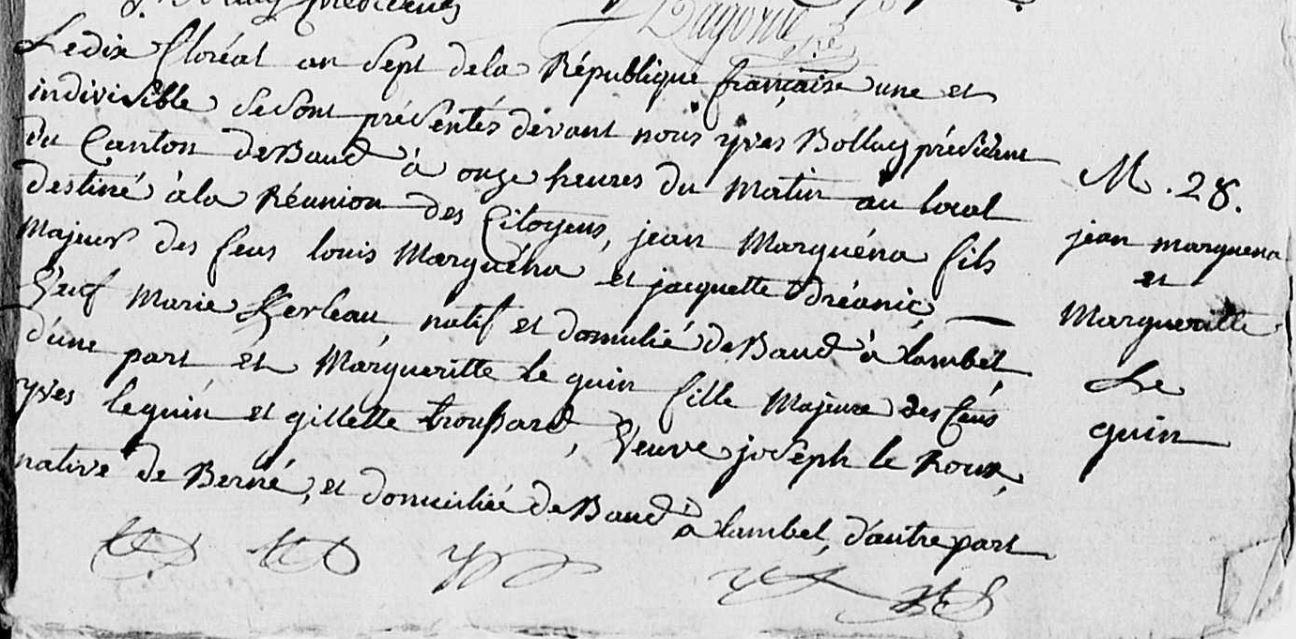 Le dix floréal an Sept de la République française une et
indivisible se sont présentés devant nous yves Bollay président
du Canton de Baud à onze heures du Matin au local
destiné à la Réunion des Citoyens, jean Marguéna fils
Majeur des feus louis Marguéna et jacquette Dréanic,
Veuf Marie Kerleau, natif et domicilié de Baud à lambel
d'une part et Margueritte le guin fille Majeure des feus
yves le guin et gillette troussard, Veuve joseph le Roux,
native de Berné, et domiciliée de Baud à lambel, d'autre part
M. 28.
jean marguena
et
Margueritte
Le
guin